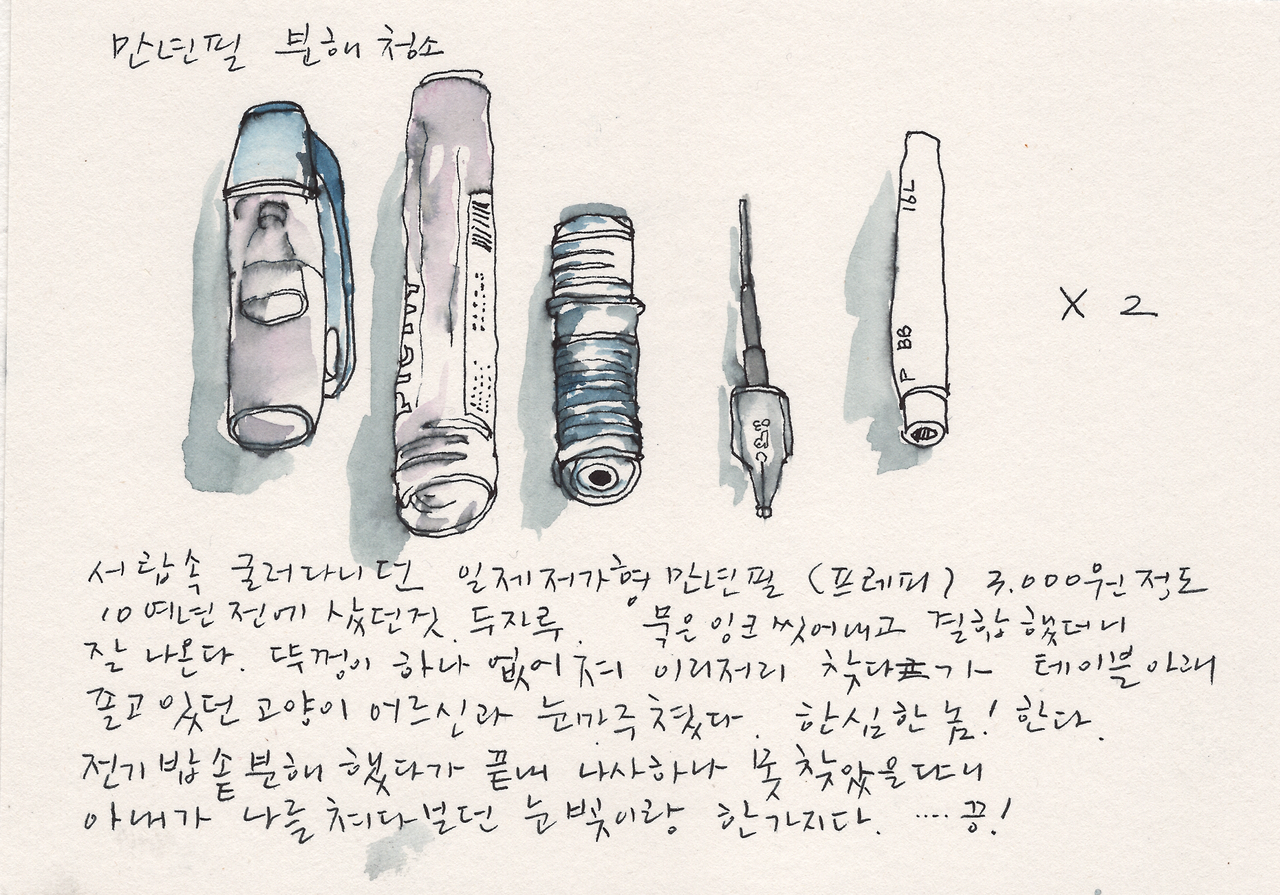 만년필 분해 청소
16L
P BB
X 2
서랍속 굴러다니던 일제저가형 만년필 (프레피) 3.000원정도
10여년전에 샀던것. 두자루. 묵은잉크씻어내고 결합했더니
잘 나온다. 뚜껑이 하나 없어져 이리저리 찾다가 테이블아래
졸고 있던 고양이 어르신과 눈마주쳤다. 한심한놈! 한다.
전기밥솥분해 했다가 끝내 나사하나 못찾았을때
아내가 나를 쳐다보던 눈빛이랑 한가지다. ····끙!